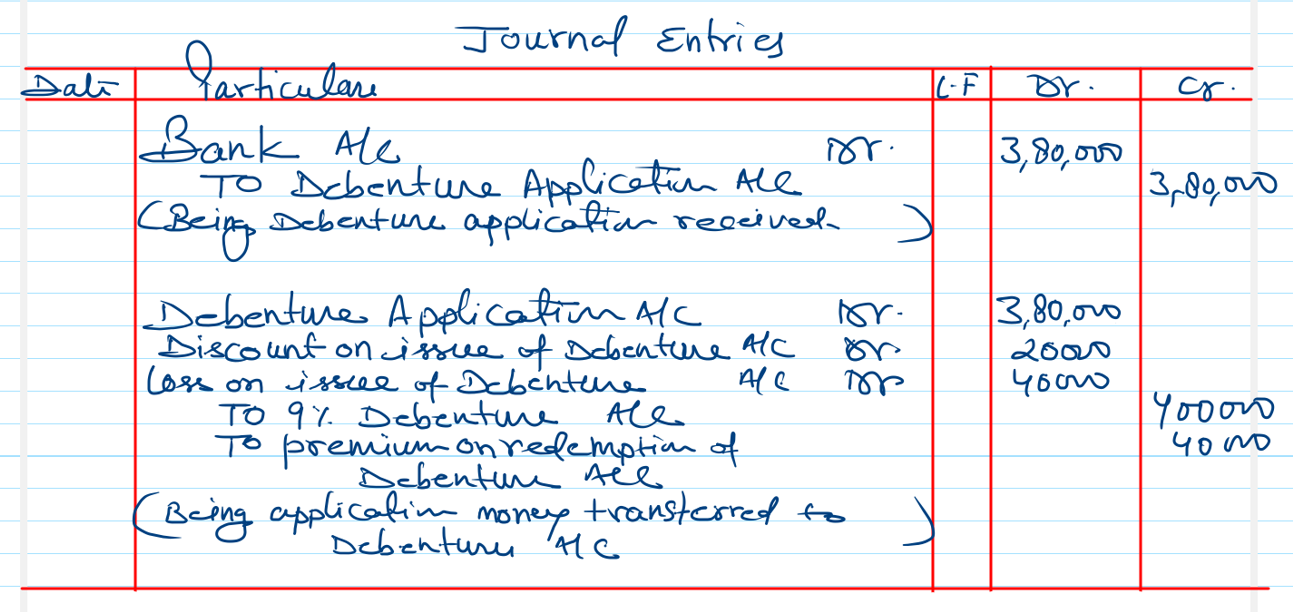 Journal Entries
Date Particulars L.F Dr. Cr.
Bank A/c Dr. 3,80,000
To Debenture Application A/c 3,80,000
(Being Debenture application received)
Debenture Application A/C Dr. 3,80,000
Discount on issue of Debenture A/C Dr 20000
Loss on issue of Debenture A/C Dr 40000
To 9% Debenture A/c 400000
To premium on redemption of 40000
Debenture A/c
(Being application money transferred to)
Debenture A/C